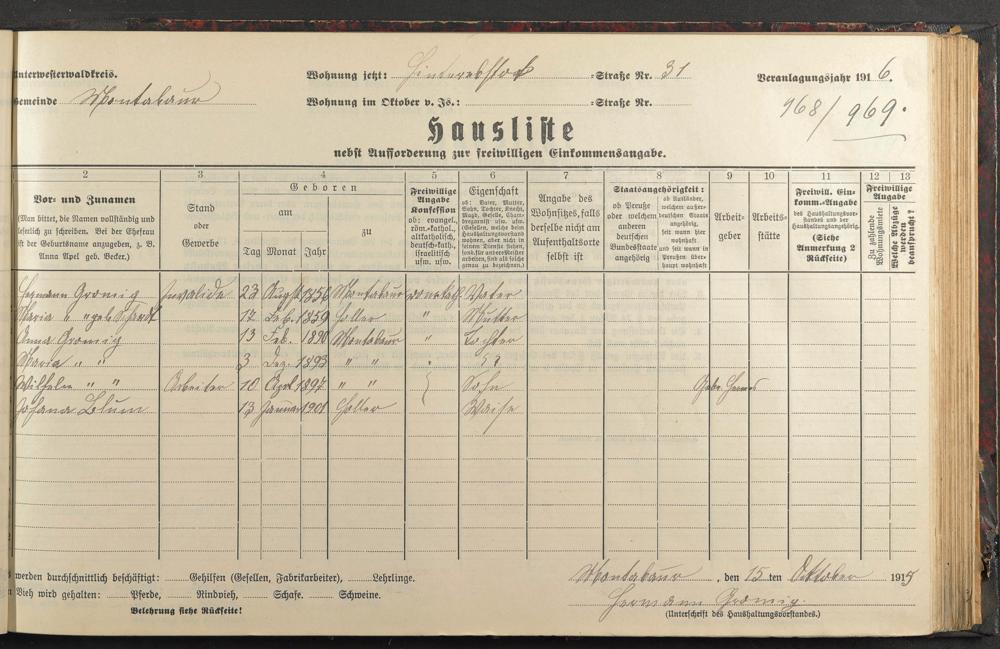 Unterwesterwaldkreis.
Wohnung jetzt: Hinterebstock =Straße Nr. 31
Veranlagungsjahr 1916.
Gemeinde Montabaur
Wohnung im Oktober v. Js.: =Straße Nr.
968/969.
Hausliste
nebst Aufforderung zur freiwilligen Einkommensangabe.
2 3 4 5 6 7 8 9 10 11 12 13
Vor- und Zunamen
(Man bittet, die Namen vollständig und
leserlich zu schreiben. Bei der Ehefrau
ist der Geburtsname anzugeben, z. B.
Anna Apel geb. Becker.)
Stand
oder
Gewerbe
Geboren
am
Tag Monat Jahr
zu
Freiwillige
Angabe
Konfession
ob: evangel.,
röm.-kathol.,
altkatholisch,
deutsch-kath.,
israelitisch
usw. usw.
Eigenschaft
ob: Vater, Mutter,
Sohn, Tochter, Knecht,
Magd, Geselle, Cham-
bregarnist usw. usw.
(Gesellen, welche beim
Haushaltungsvorstand
wohnen, aber nicht in
seinem Dienste stehen,
sond. für andere Meister
arbeiten, sind als solche
genau zu bezeichnen.)
Angabe des
Wohnsitzes, falls
derselbe nicht am
Aufenthaltsorte
selbst ist
Staatsangehörigkeit:
ob Preuße
oder welchem
anderen
deutschen
Bundesstaate
angehörig
ob Ausländer,
welchem außer-
deutschen Staate
angehörig,
seit wann hier
wohnhaft
und seit wann in
Preußen über-
haupt wohnhaft
Arbeit-
geber
Arbeits-
stätte
Freiwill. Ein-
komm.-Angabe
des Haushaltungsvor-
standes und der
Haushaltungsangehörig.
(Siehe
Anmerkung 2
Rückseite)
Freiwillige
Angabe
Zu zahlende
Wohnungsmiete
Welche Abzüge
werden
beansprucht?
Hermann Gromig Invalide 23 August 1856 Montabaur Vater
Maria " " geb. 17 Feb. 1859 Holler " Mutter
Anna Gromig 13 Feb. 1890 Montabaur " Tochter
Maria " " 3 Dez. 1893 " " "
Wilhelm " " Arbeiter 10 April 1897 " " Sohn Gebr.
Johana Blum 13 Januar 1901 Holler Waise
werden durchschnittlich beschäftigt: Gehilfen (Gesellen, Fabrikarbeiter), Lehrlinge.
Vieh wird gehalten: Pferde, Rindvieh, Schafe. Schweine.
Belehrung siehe Rückseite!
Montabaur, den 15 ten Oktober 1915
Hermann Gromig.
(Unterschrift des Haushaltungsvorstandes.)